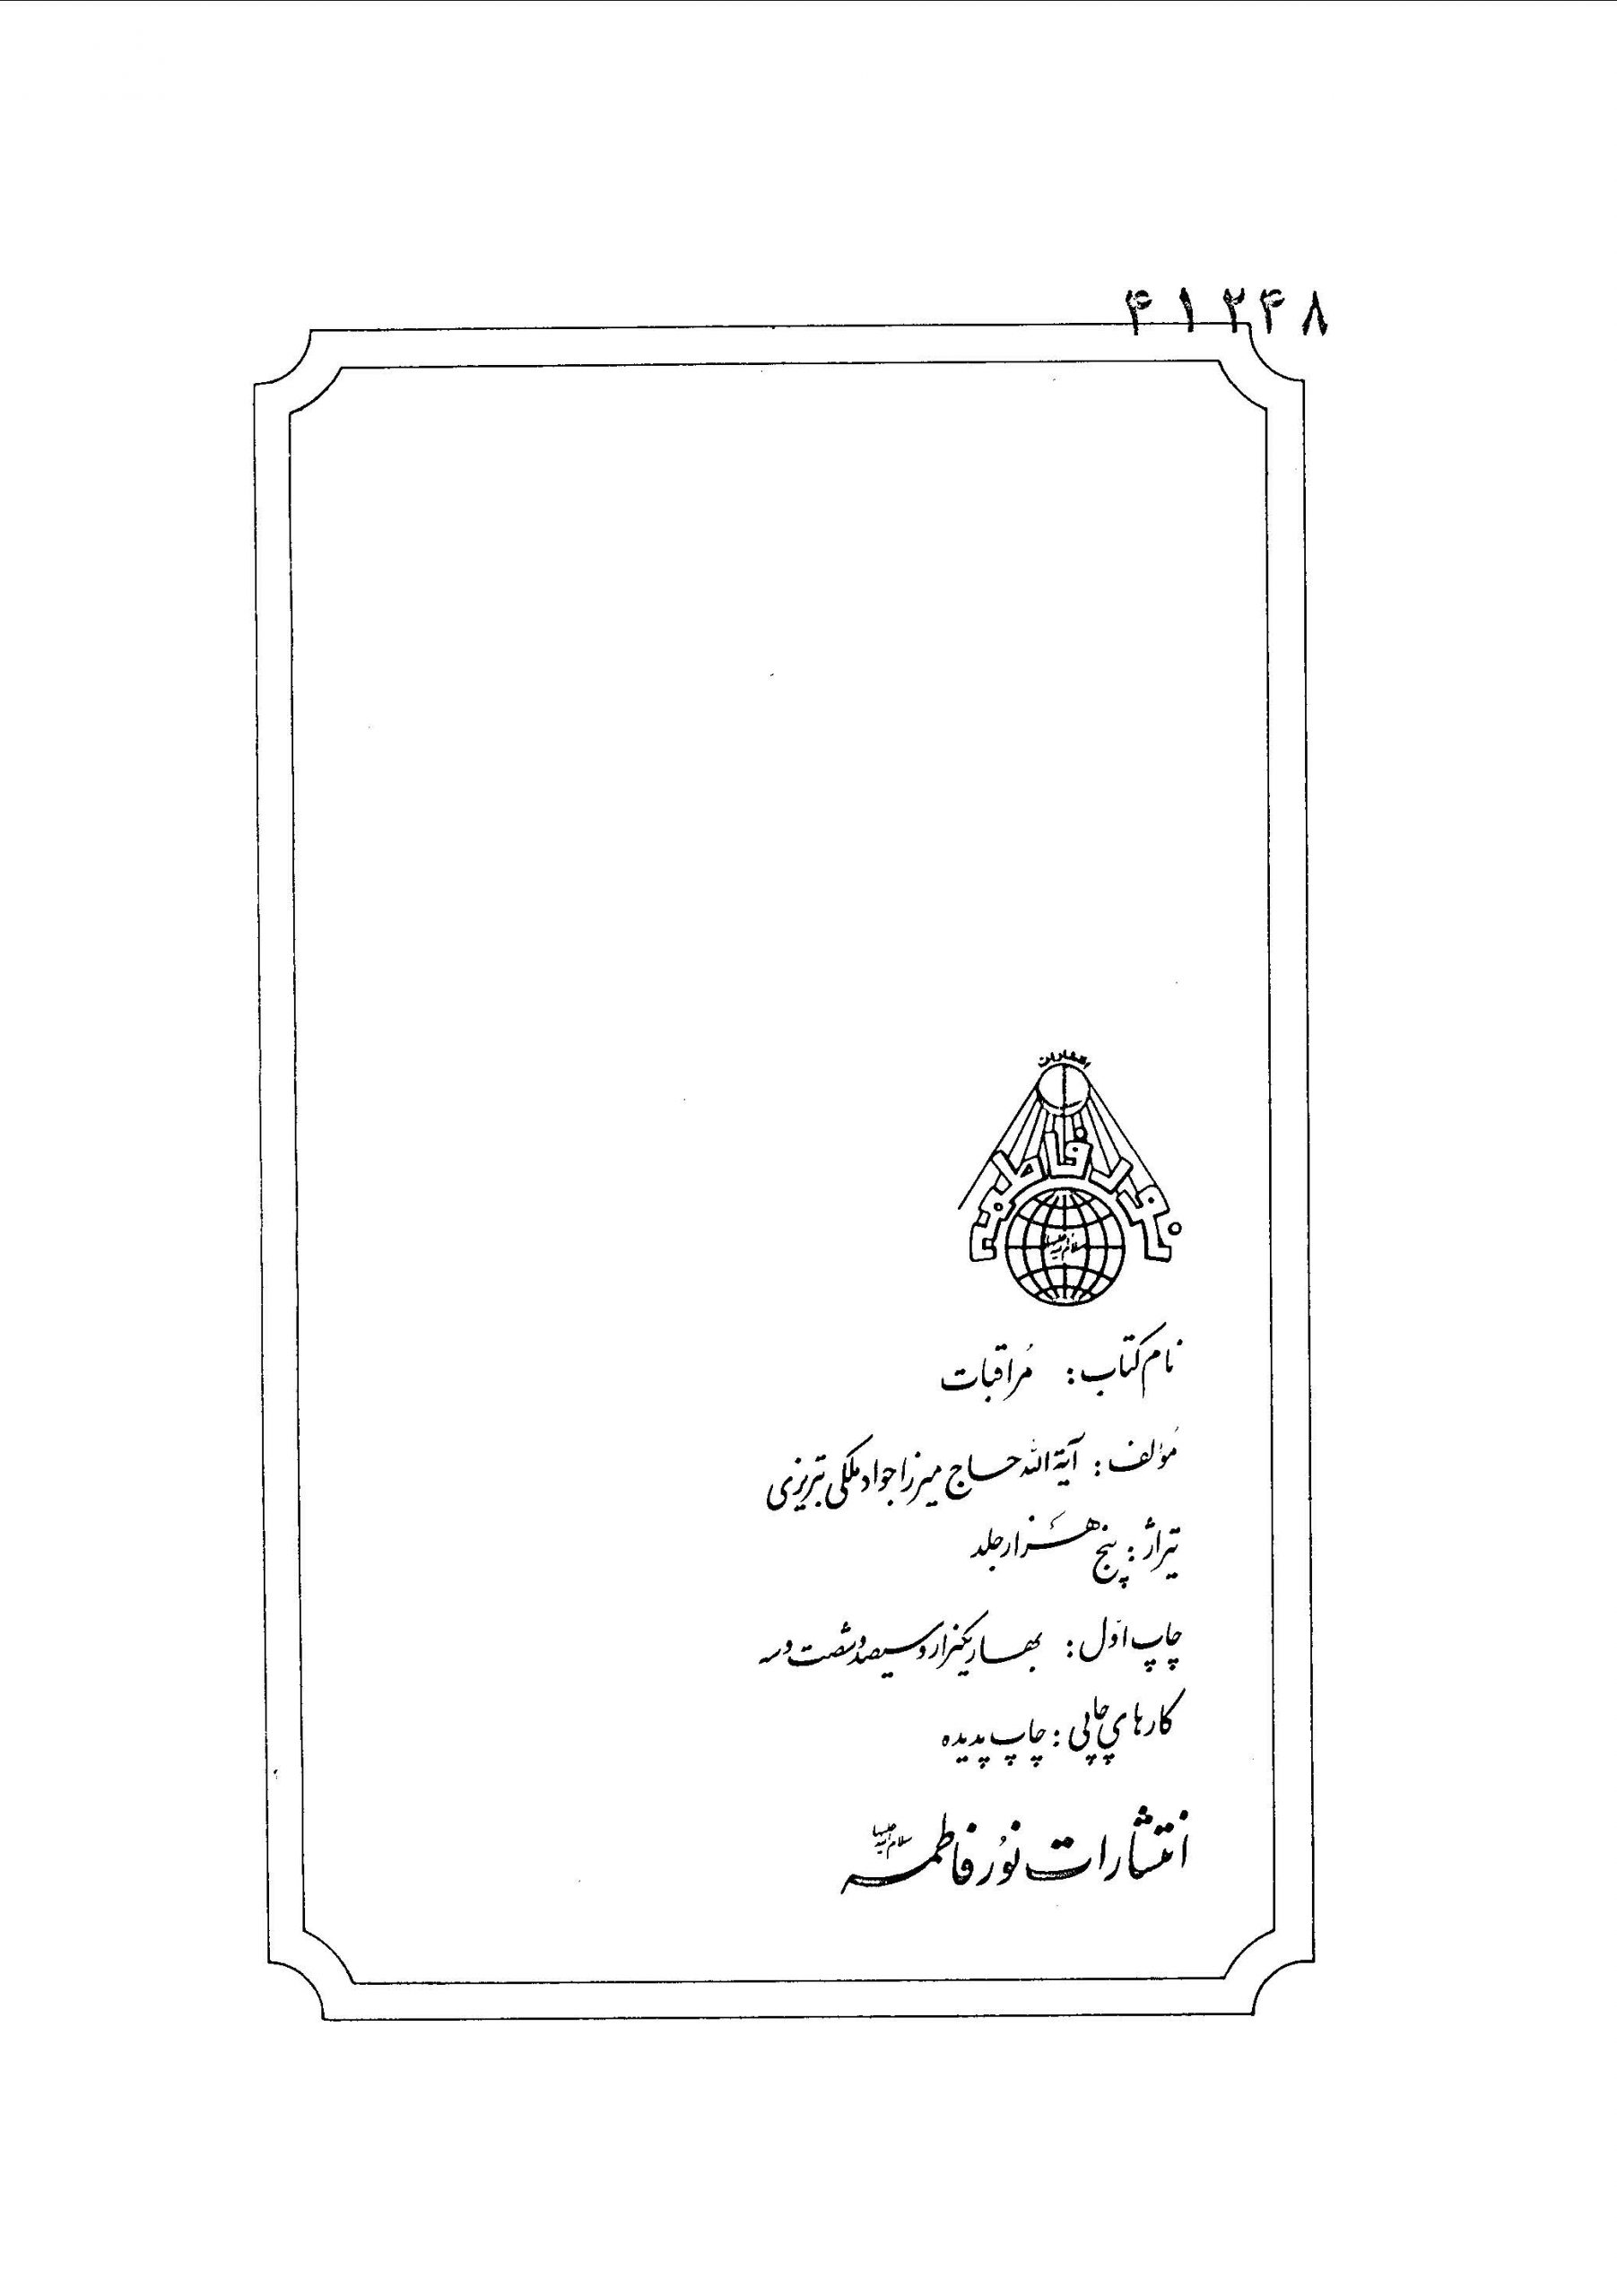 ۴۱۲۴۸
انتشارات
نور فاطمه
سلام الله علیها
نام کتاب: مُراقبات
مُؤلف: آیة الله حاج میرزا جواد ملکی تبریزی
تیراژ: پنج هزار جلد
چاپ اوّل: بهار یکهزار و سیصد و شصت و سه
کارهای چاپی: چاپ پدیده
انتشارات نُور فاطمه سلام الله علیها